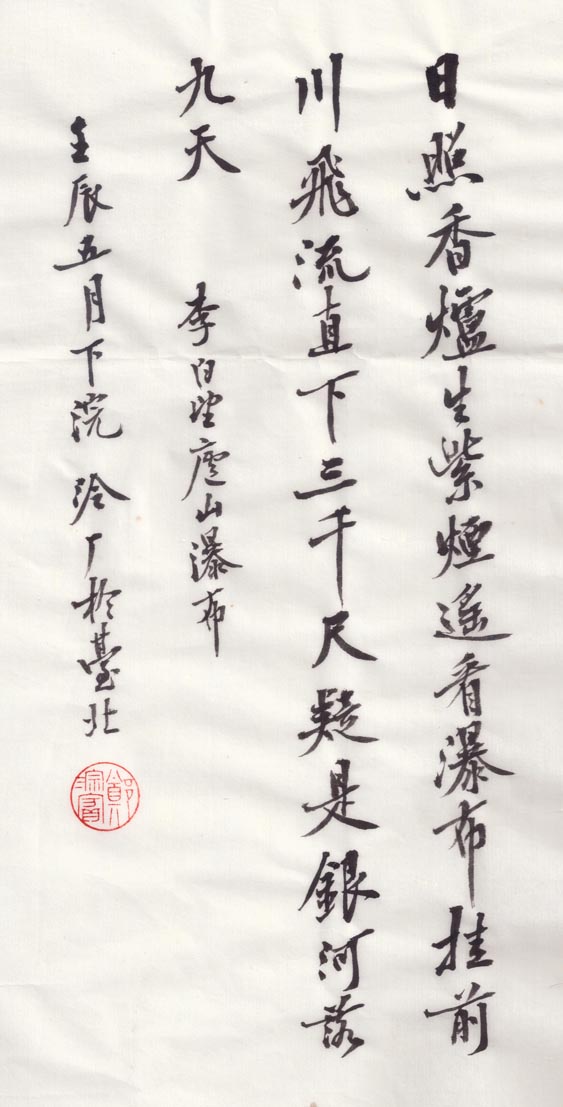 日照香爐生紫煙遙看瀑布挂前
川飛流直下三千尺疑是銀河落
九天
李白望廬山瀑布
壬辰五月下浣 泠厂於臺北